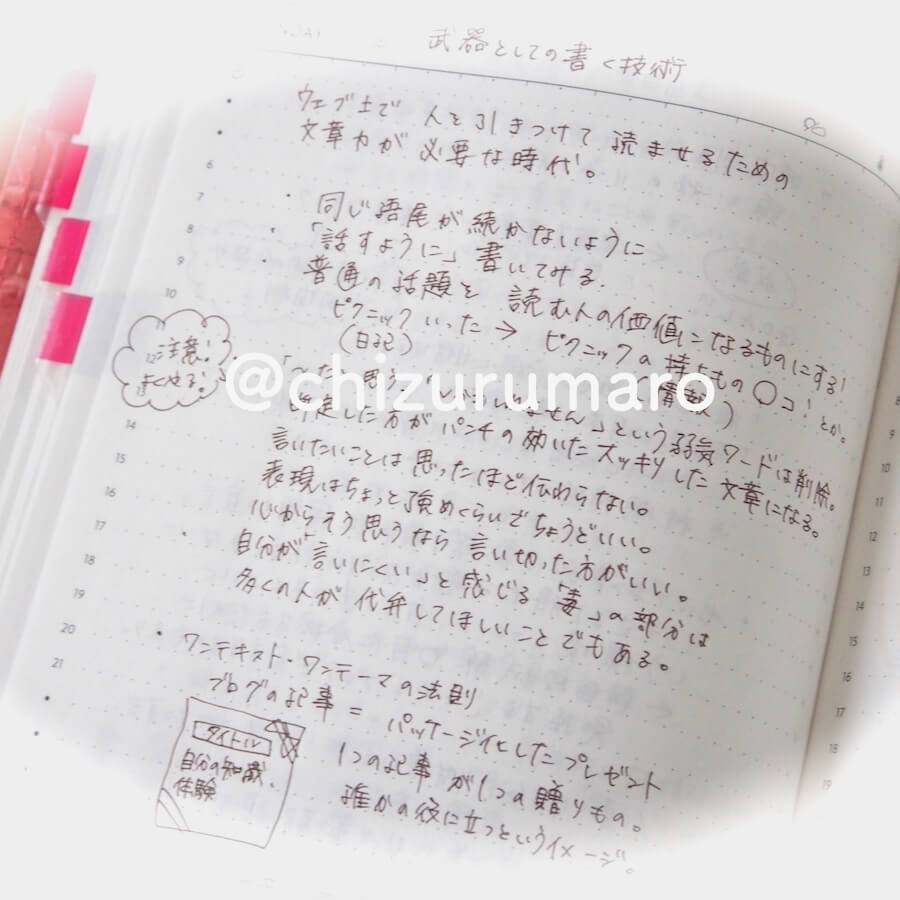 武器としての書く技術
ウェブ上で 人を引きつけて 読ませるための
文章力が 必要な時代。
・同じ語尾が続かないように
・「話すように」書いてみる.
・普通の話題を 読む人の価値になるものにする!
ピクニックいった → ピクニックの持ちもの○コ! とか。
(日記)
(情報)
注意!
よくやる!
@chizurumaro
という弱気ワードは削除。
断定した方が パンチの効いたスッキリした文章になる。
言いたいことは 思ったほど伝わらない。
表現はちょっと強めくらいでちょうどいい。
心からそう思うなら 言い切った方がいい。
・自分が「言いにくい」と感じる「毒」の部分は
多くの人が 代弁してほしいことでもある。
・ワンテキスト・ワンテーマの法則
ブログの記事 = パッケージ化したプレゼント
1つの記事が1つの贈りもの。
誰かの役に立つというイメージ。
タイトル
自分の知識、
体験
6
7
8
9
10
11
12
13
14
15
16
17
18
19
20
21
8
9
10
11
12
13
14
15
16
17
18
19